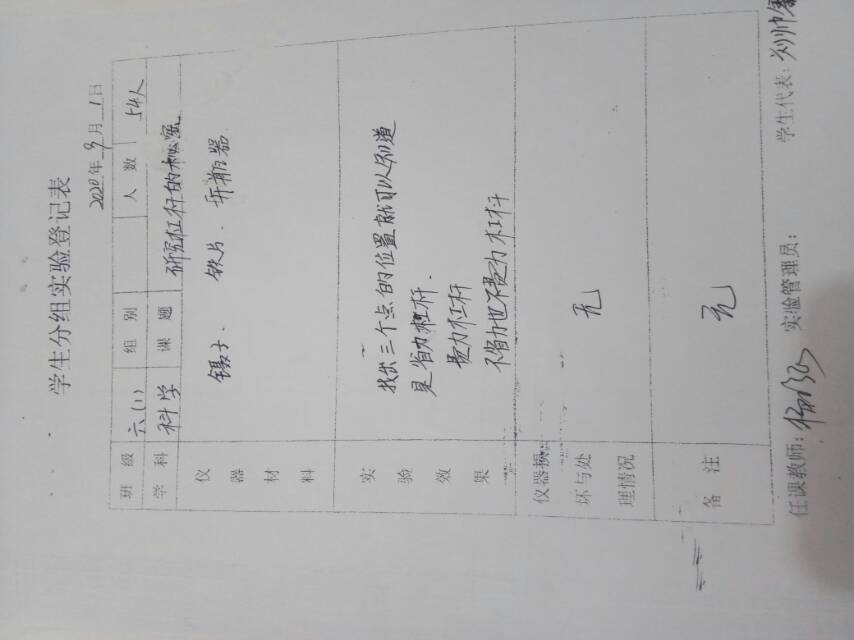 学生分组实验登记表
2020年9月1日
班级 六(1) 组别 人数 54人
学科 科学 课题 研究杠杆的秘密
仪器材料 镊子、铁片、开瓶器
实验效果 找出三个点的位置就可以知道
是省力杠杆、
费力杠杆
不省力也不费力杠杆
仪器损坏与处理情况 无
备注 无
任课教师: 实验管理员: 学生代表: 刘帅